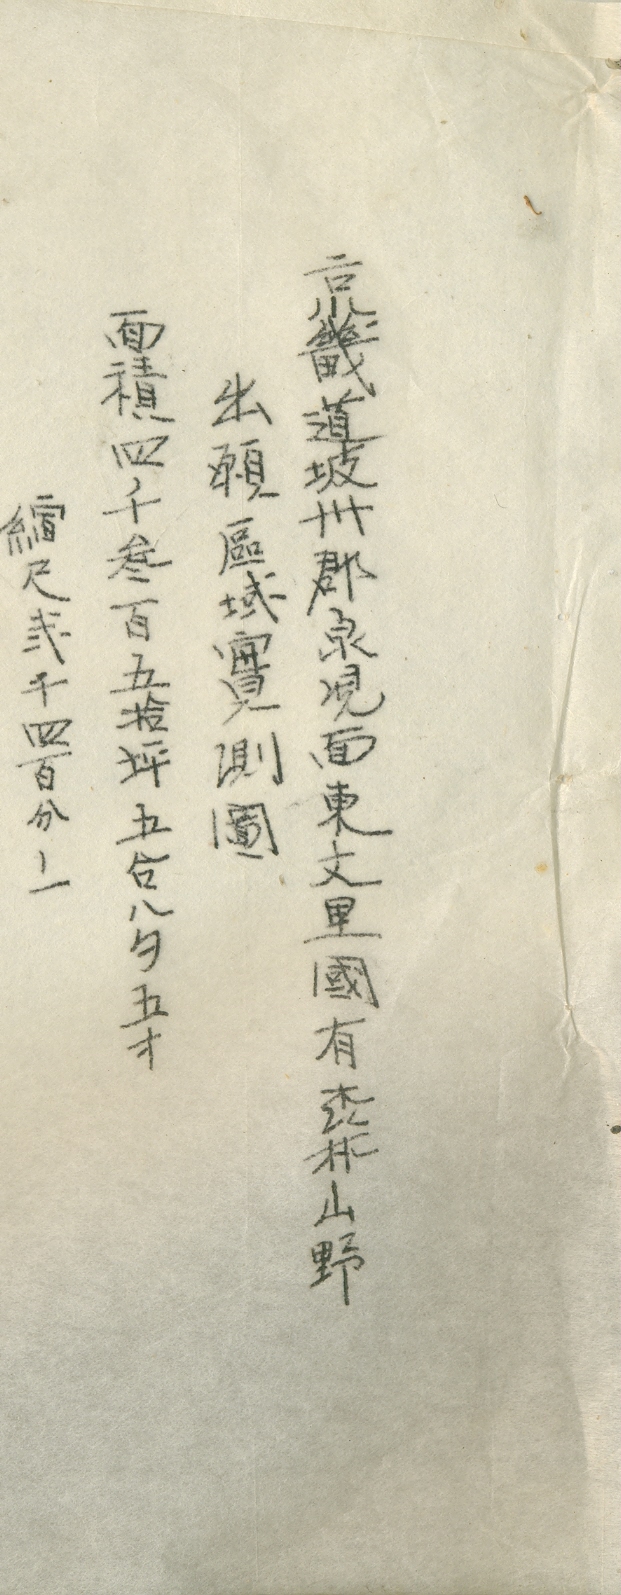 京畿道坡州郡泉峴面東文里國有森林山野
出願區域實測圖
面積四千叄百五拾坪五合八夕五才
縮尺弐千四百分ノ一